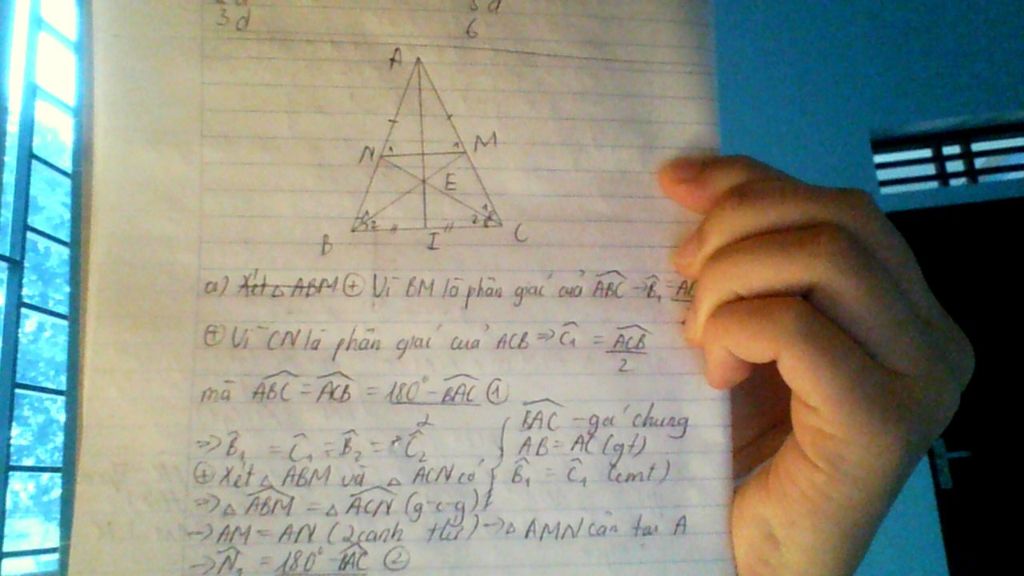 3d
3d
6
A
N 1 1 M
E
B 1 2 I 2 1 C
a) Xét △ ABM ⊕ Vì BM là phân giác của ABC → B̂₁ =
⊕ Vì CN là phân giác của ACB ⇒ Ĉ₁ = ACB/2
mà ABC = ACB = 180° - BAC / 2 ①
⇒ B̂₁ = Ĉ₁ = B̂₂ = Ĉ₂
⊕ Xét △ ABM và △ ACN có { BAC - góc chung
AB = AC (gt)
B̂₁ = Ĉ₁ (cmt)
⇒ △ ABM = △ ACN (g-c-g)
→ AM = AN (2 cạnh tứ) → △ AMN cân tại A
→ N̂₁ = 180° - BAC ②